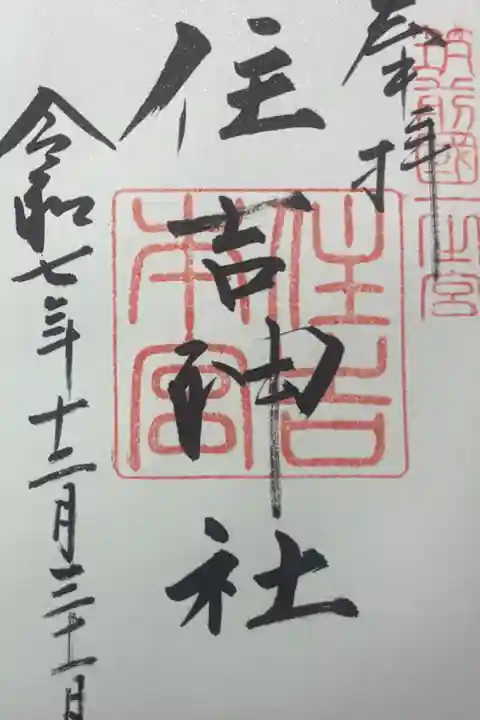 筑前國一之宮
奉拝
住吉神社
住吉本宮
令和七年十二月三十一日